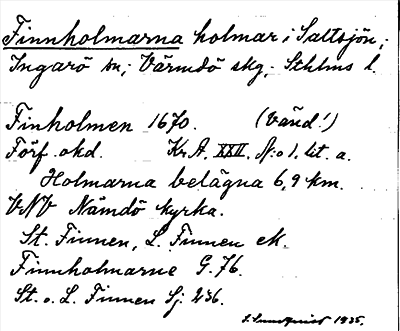 Finnholmarna holmar i Saltsjön,
Ingarö sn; Värmdö skg, Sthlms l.
Finholmen 1670. (Vänd!)
Förf. okd. Kr.A. XXII. N:o 1. lit. a.
Holmarna belägna 6,9 km.
VNV Nämdö kyrka.
St. Finnen, L. Finnen ek.
Finnholmarne G. 76.
St. o. L. Finnen Sj. 236.
S. Sundqvist 1935.